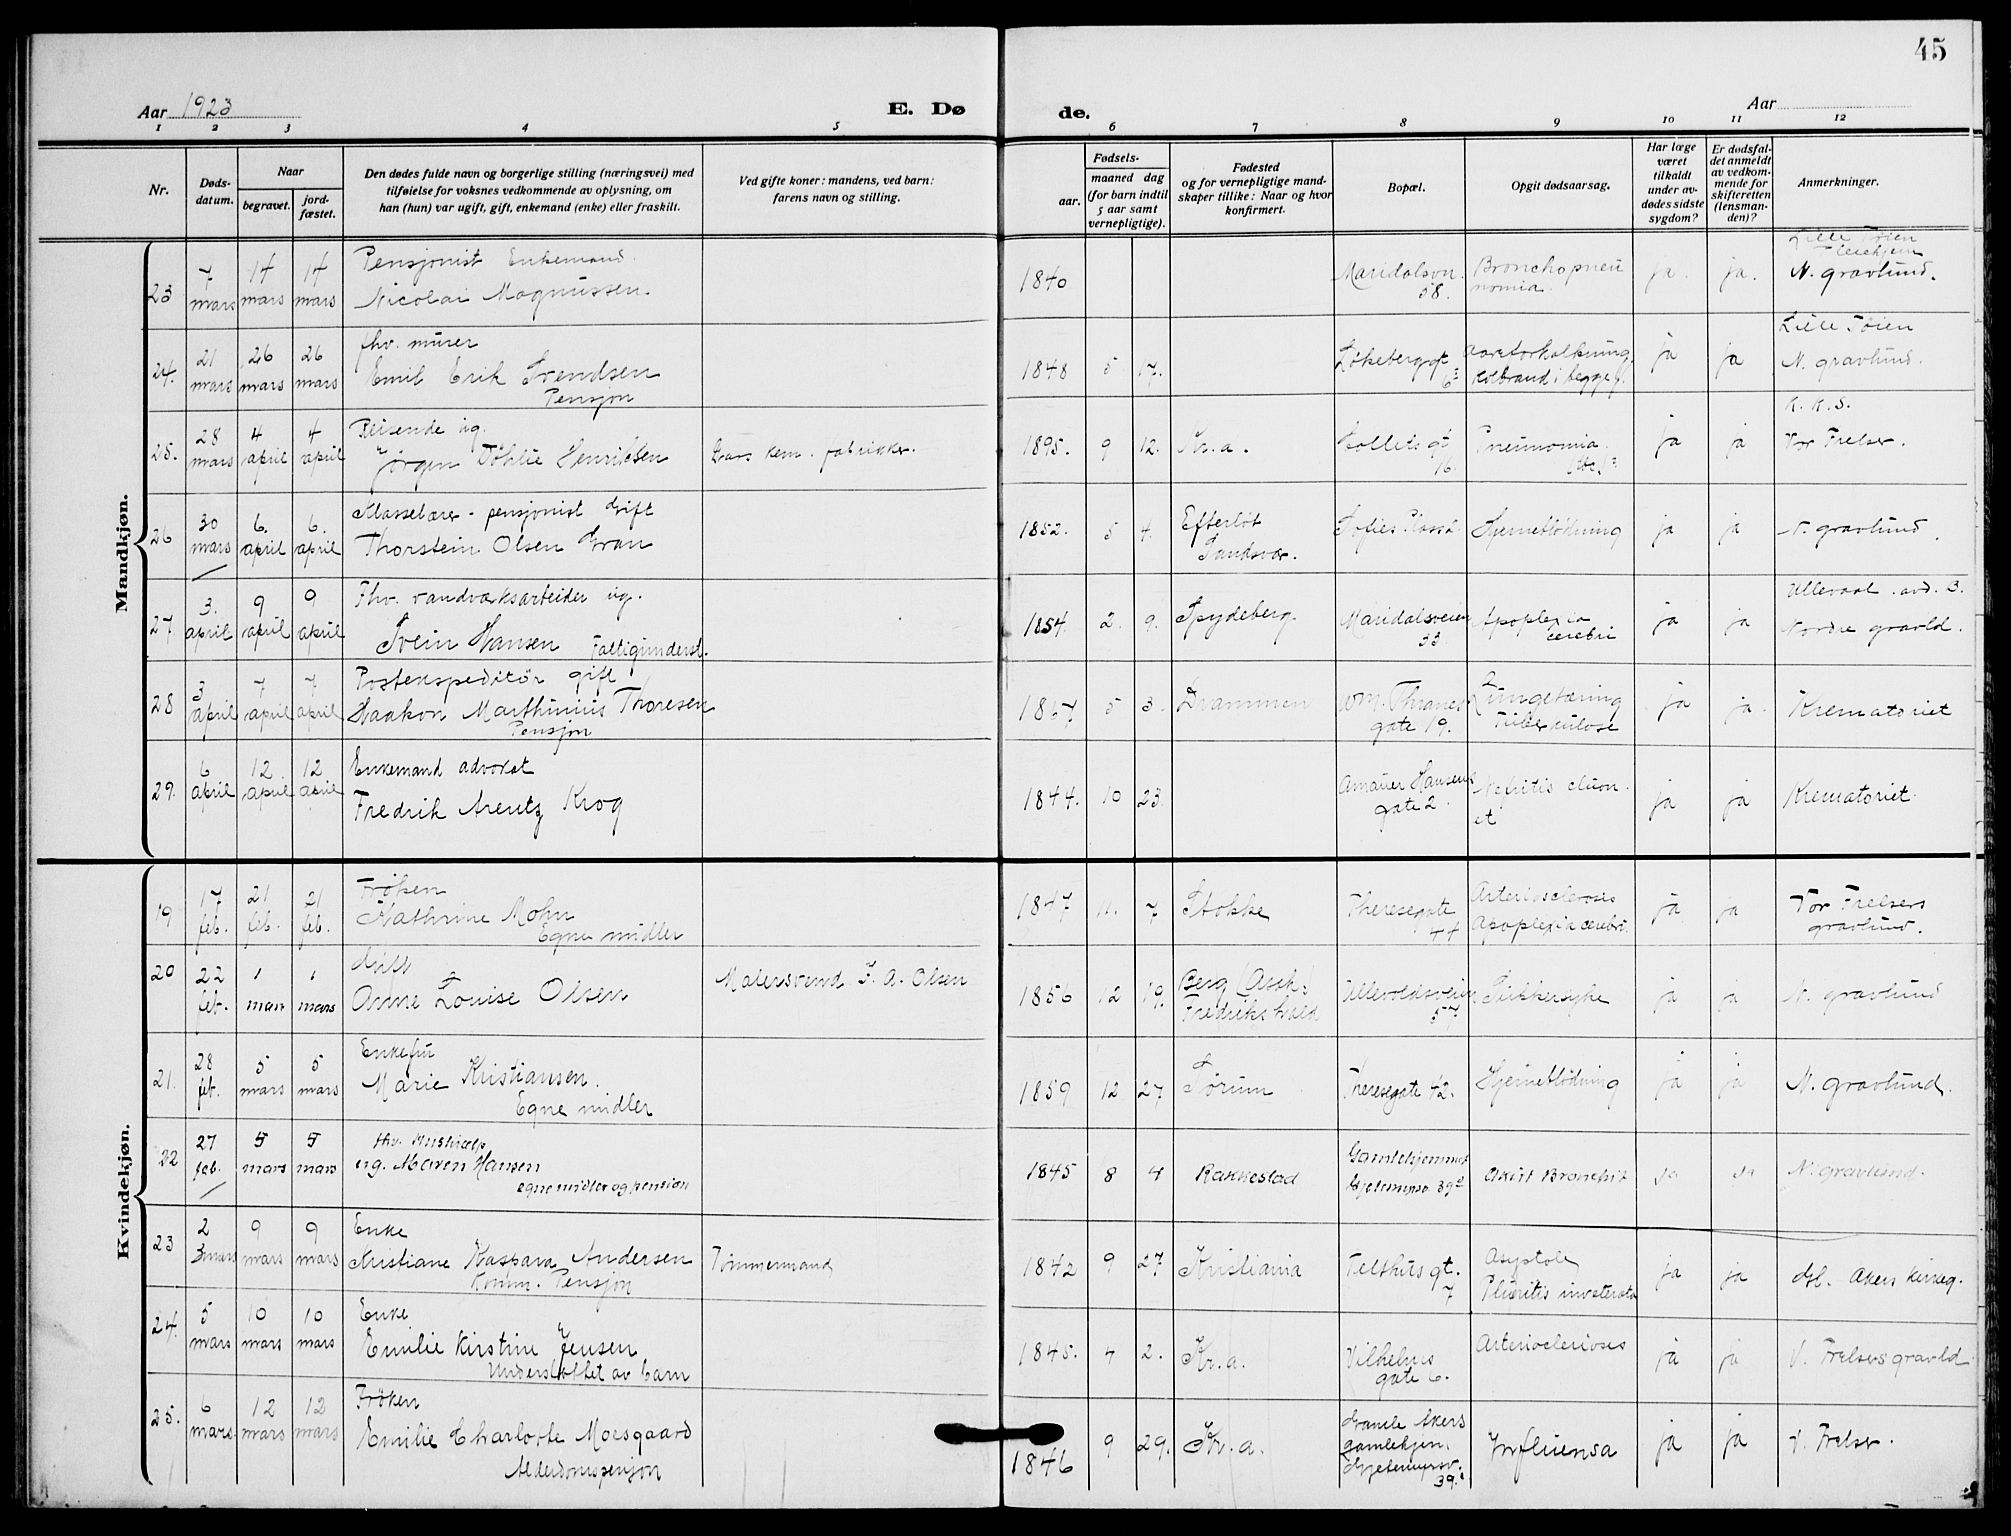 45
Aar 1923
E. Dø
de.
Aar
1 2 3 4 5 6 7 8 9 10 11 12
Nr.
Døds-
datum.
Naar
begravet.
jord-
fæstet.
Den dødes fulde navn og borgerlige stilling (næringsvei) med
tilføielse for voksnes vedkommende av oplysning, om
han (hun) var ugift, gift, enkemand (enke) eller fraskilt.
Ved gifte koner: mandens, ved barn:
farens navn og stilling.
Fødsels-
aar.
maaned dag
(for barn indtil
5 aar samt
vernepligtige).
Fødested
og for vernepligtige mand-
skaper tillike: Naar og hvor
konfirmert.
Bopæl.
Opgit dødsaarsag.
Har læge
været
tilkaldt
under av-
dødes sidste
sygdom?
Er dødsfal-
det anmeldt
av vedkom-
mende for
skifteretten
(lensman-
den)?
Anmerkninger.
Mandkjøn.
23 7 mars 14 mars 14 mars
Pensjonist Enkemand.
Nicolai Magnussen
1840 Maridalsvn. 58. Bronchopneu
nomia. ja. ja.
Lille Tøien
N. gravlund.
24. 21 mars 26 mars 26 mars
fhv. murer
Emil Erik Svendsen
Pensjon
1848 5 17. Løkeberggt 6 Aareforkalkning
koldbrand i begge f. ja ja
Lille Tøien
N. gravlund.
25. 28 mars 4 april 4 april
Reisende ug.
Jørgen Döhlie Henriksen
kem. fabrikker.
1895. 9 12. Kr.a. Collets gt 6. Pneumonia ja ja
K. K. S.
Vor Frelser.
26 30 mars 6. april 6. april
Klasselærer - pensjonist Gift
Thorstein Olsen Gran
1852. 5 4. Efterløt
Sandsvær.
Sofies Plass Hjerneblödning ja ja N. gravlund.
27. 3. april 9 april 9 april
Fhv. vandværksarbeider ug.
Svein Hansen Fattigunderst.
1854. 2. 9. Spydeberg. Maridalsveien
33. Apoplexia
cerebri ja ja
Ullevaal. avd. B.
Nordre gravld.
28 3 april 7 april 7 april
Postekspeditör gift
Haakon Marthinius Thoresen
Pensjon
1867. 5 3. Drammen WM. Thranes
gate 19. Lungetæring
Tuberkulose ja ja. Krematoriet
29. 6 april 12 april 12 april
Enkemand advokat
Fredrik Arentz Krog
1844. 10 23. Amalir Hansens
gate 2. Nefritis chron. ja ja Krematoriet.
Kvindekjøn.
19 17 feb. 21 feb. 21 feb.
Frøken
Kathrine Mohn
Egne midler
1847 11. 7 Stokke Theresegate
44 Arteriosclerosis
Apoplexia cerebri. ja ja Vor Frelsers
gravlund.
20 22 feb. 1 mars 1 mars
Gift
Anne Louise Olsen
Malersvend J. A. Olsen
1856 12 19. Berg (Asak)
Fredrikshald
Ullevoldsveien
57. Sukkersyke ja ja N. gravlund
21. 28 feb. 5 mars 5 mars
Enkefru
Marie Kristiansen.
Egne midler
1859 12 27 Sørum Theresegate 42. Hjerneblödning ja ja N. gravlund.
22 27 feb. 5 mars 5 mars
fhv. Hushjælp
ug. Maren Hansen
egne midler og pension
1845 8 4 Rakkestad Gamlehjemmet
Gjetemyrsv. 39 Akut Bronchit ja ja N. gravlund.
23 2 mars 9 mars 9 mars
Enke
Kristiane Kaspara Andersen
Komm. Pensjon
Tömmermand
1842 9 27 Kristiania Telthus gt.
7 Asystole
Pleuritis inveterata ja ja Gl. Akers kirkeg.
24. 5 mars 10 mars 10 mars
Enke
Emilie Kirstine Jensen
Understøttet av barn
1845. 4 2. Kr.a. Vilhelms
gate 6. Arterioclerioses ja ja V. Frelsers gravld
25. 6 mars. 12 mars 12 mars
Frøken
Emilie Charlotte Moesgaard
Alderdomspensjon
1846 9 29. Kr.a. Gamle Akers
gamlehjem.
Gjetemyrsv.
39. Influensa ja ja V. Frelser.